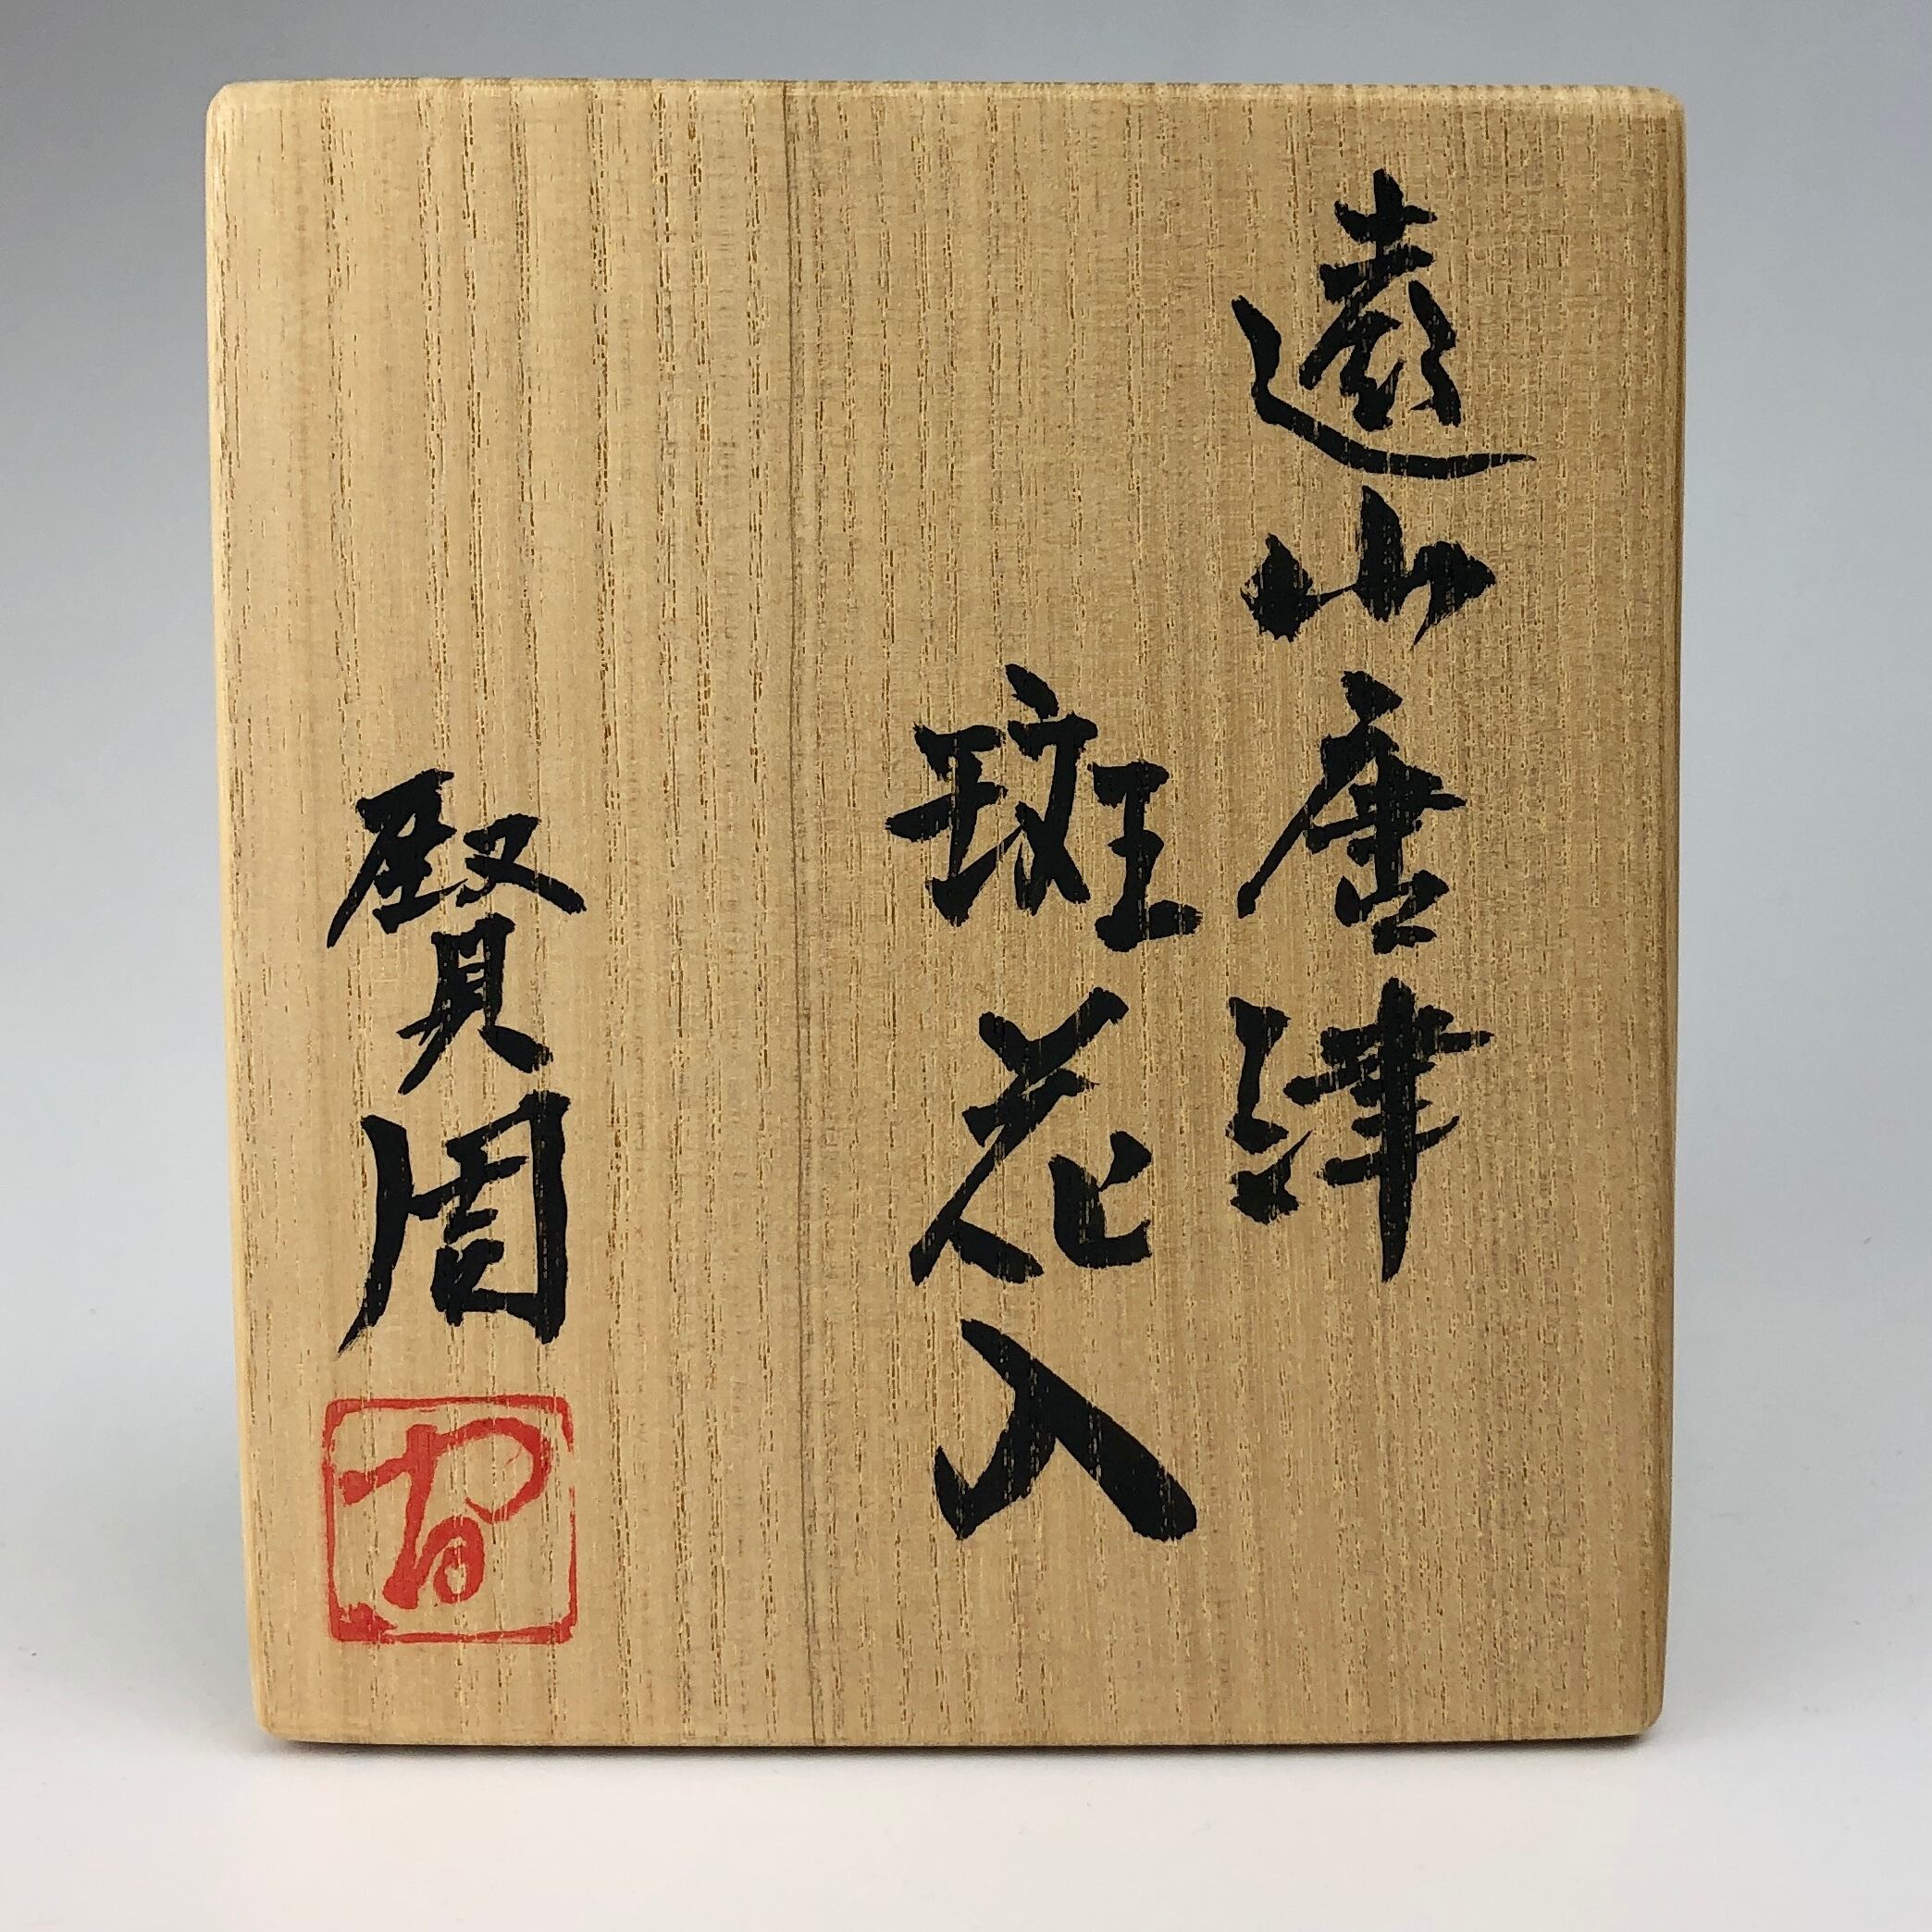 遠山唐津
斑花入
賢周